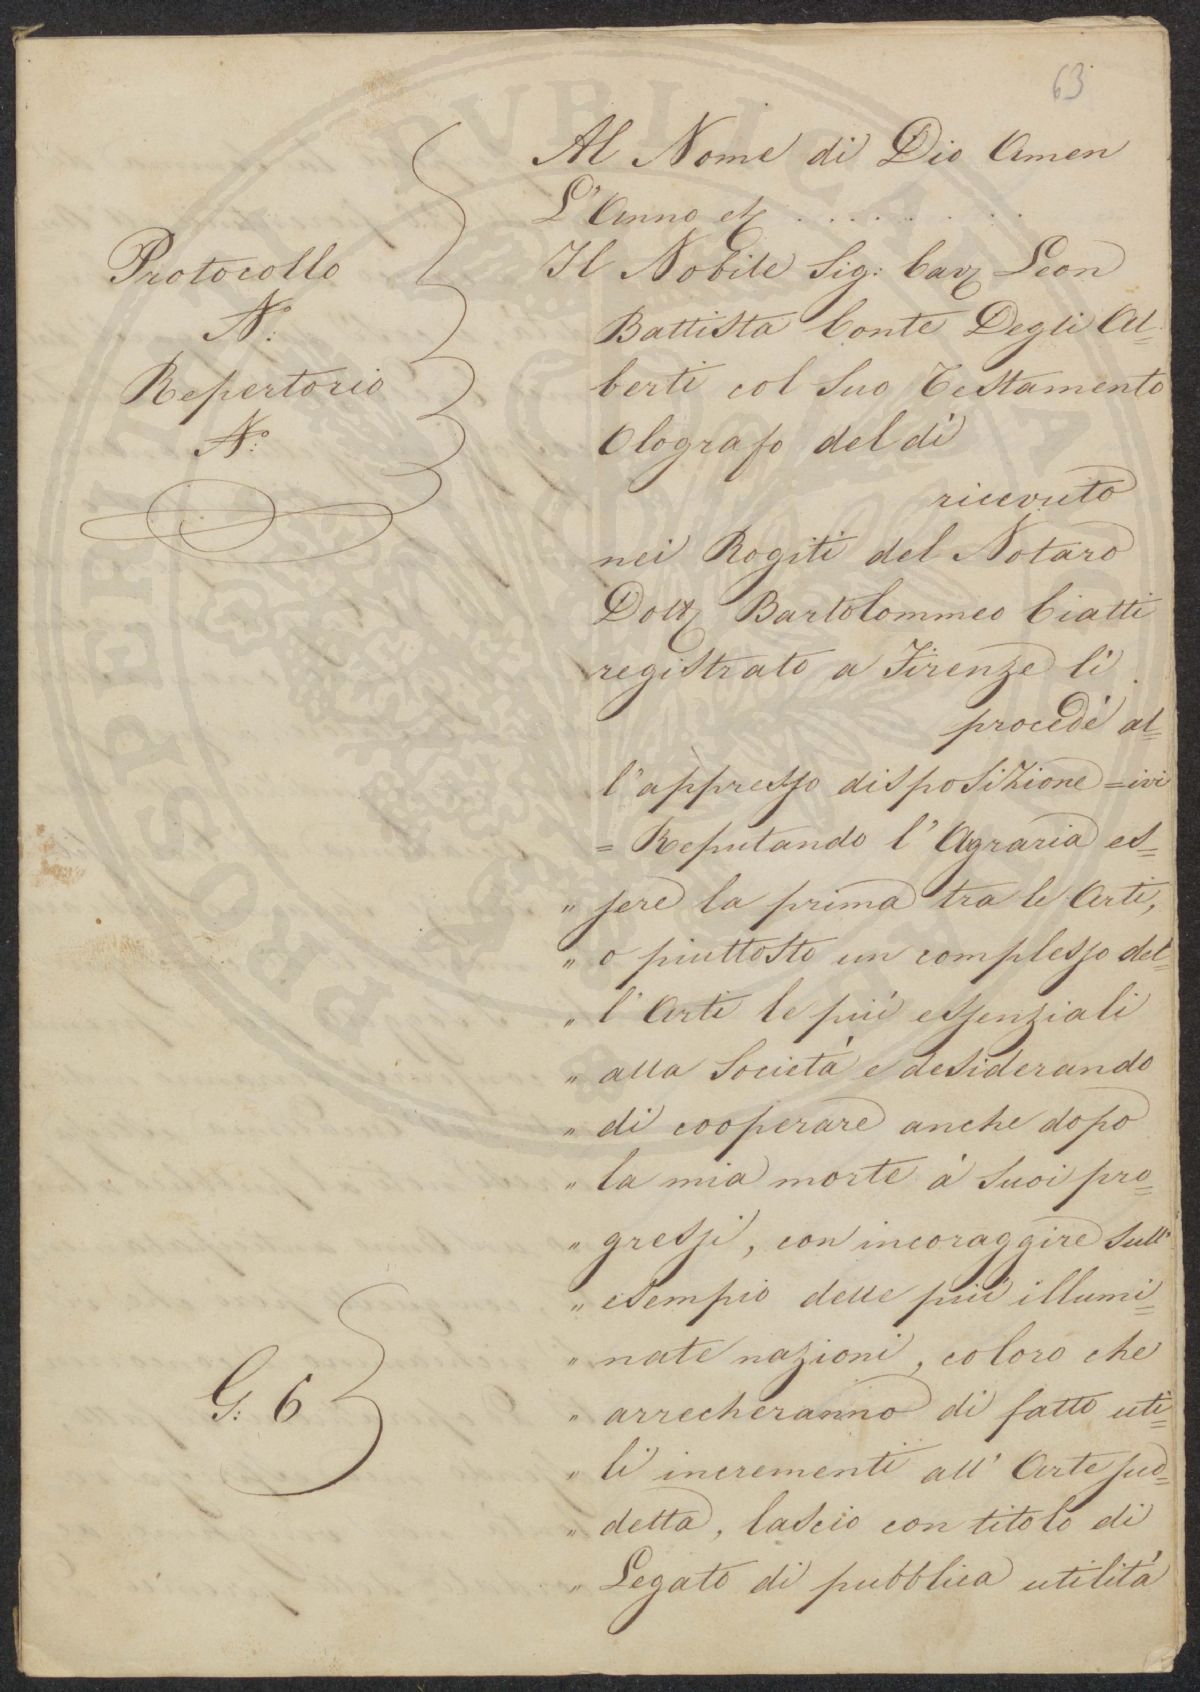 63
Al Nome di Dio Amen
L'Anno etc . . . . . . . .
Protocollo
N:
Repertorio
N:
Il Nobile Sig: Cav Leon
Battista Conte Degli Al=
berti col suo Testamento
Olografo del dì
ricevuto
nei Rogiti del Notaro
Dott Bartolommeo Ciatti
registrato a Firenze li
procedè al=
l'appresso disposizione = ivi
= Reputando l'Agraria es=
" sere la prima tra le Arti,
" o piuttosto un complesso del=
" l'Arti le più essenziali
" alla Società e desiderando
" di cooperare anche dopo
" la mia morte à suoi pro=
" gressi, con incoraggire sull'
" esempio delle più illumi=
" nate nazioni, coloro che
" arrecheranno di fatto uti=
" li incrementi all'Arte sud=
" detta, lascio con titolo di
" Legato di pubblica utilità
G: 6